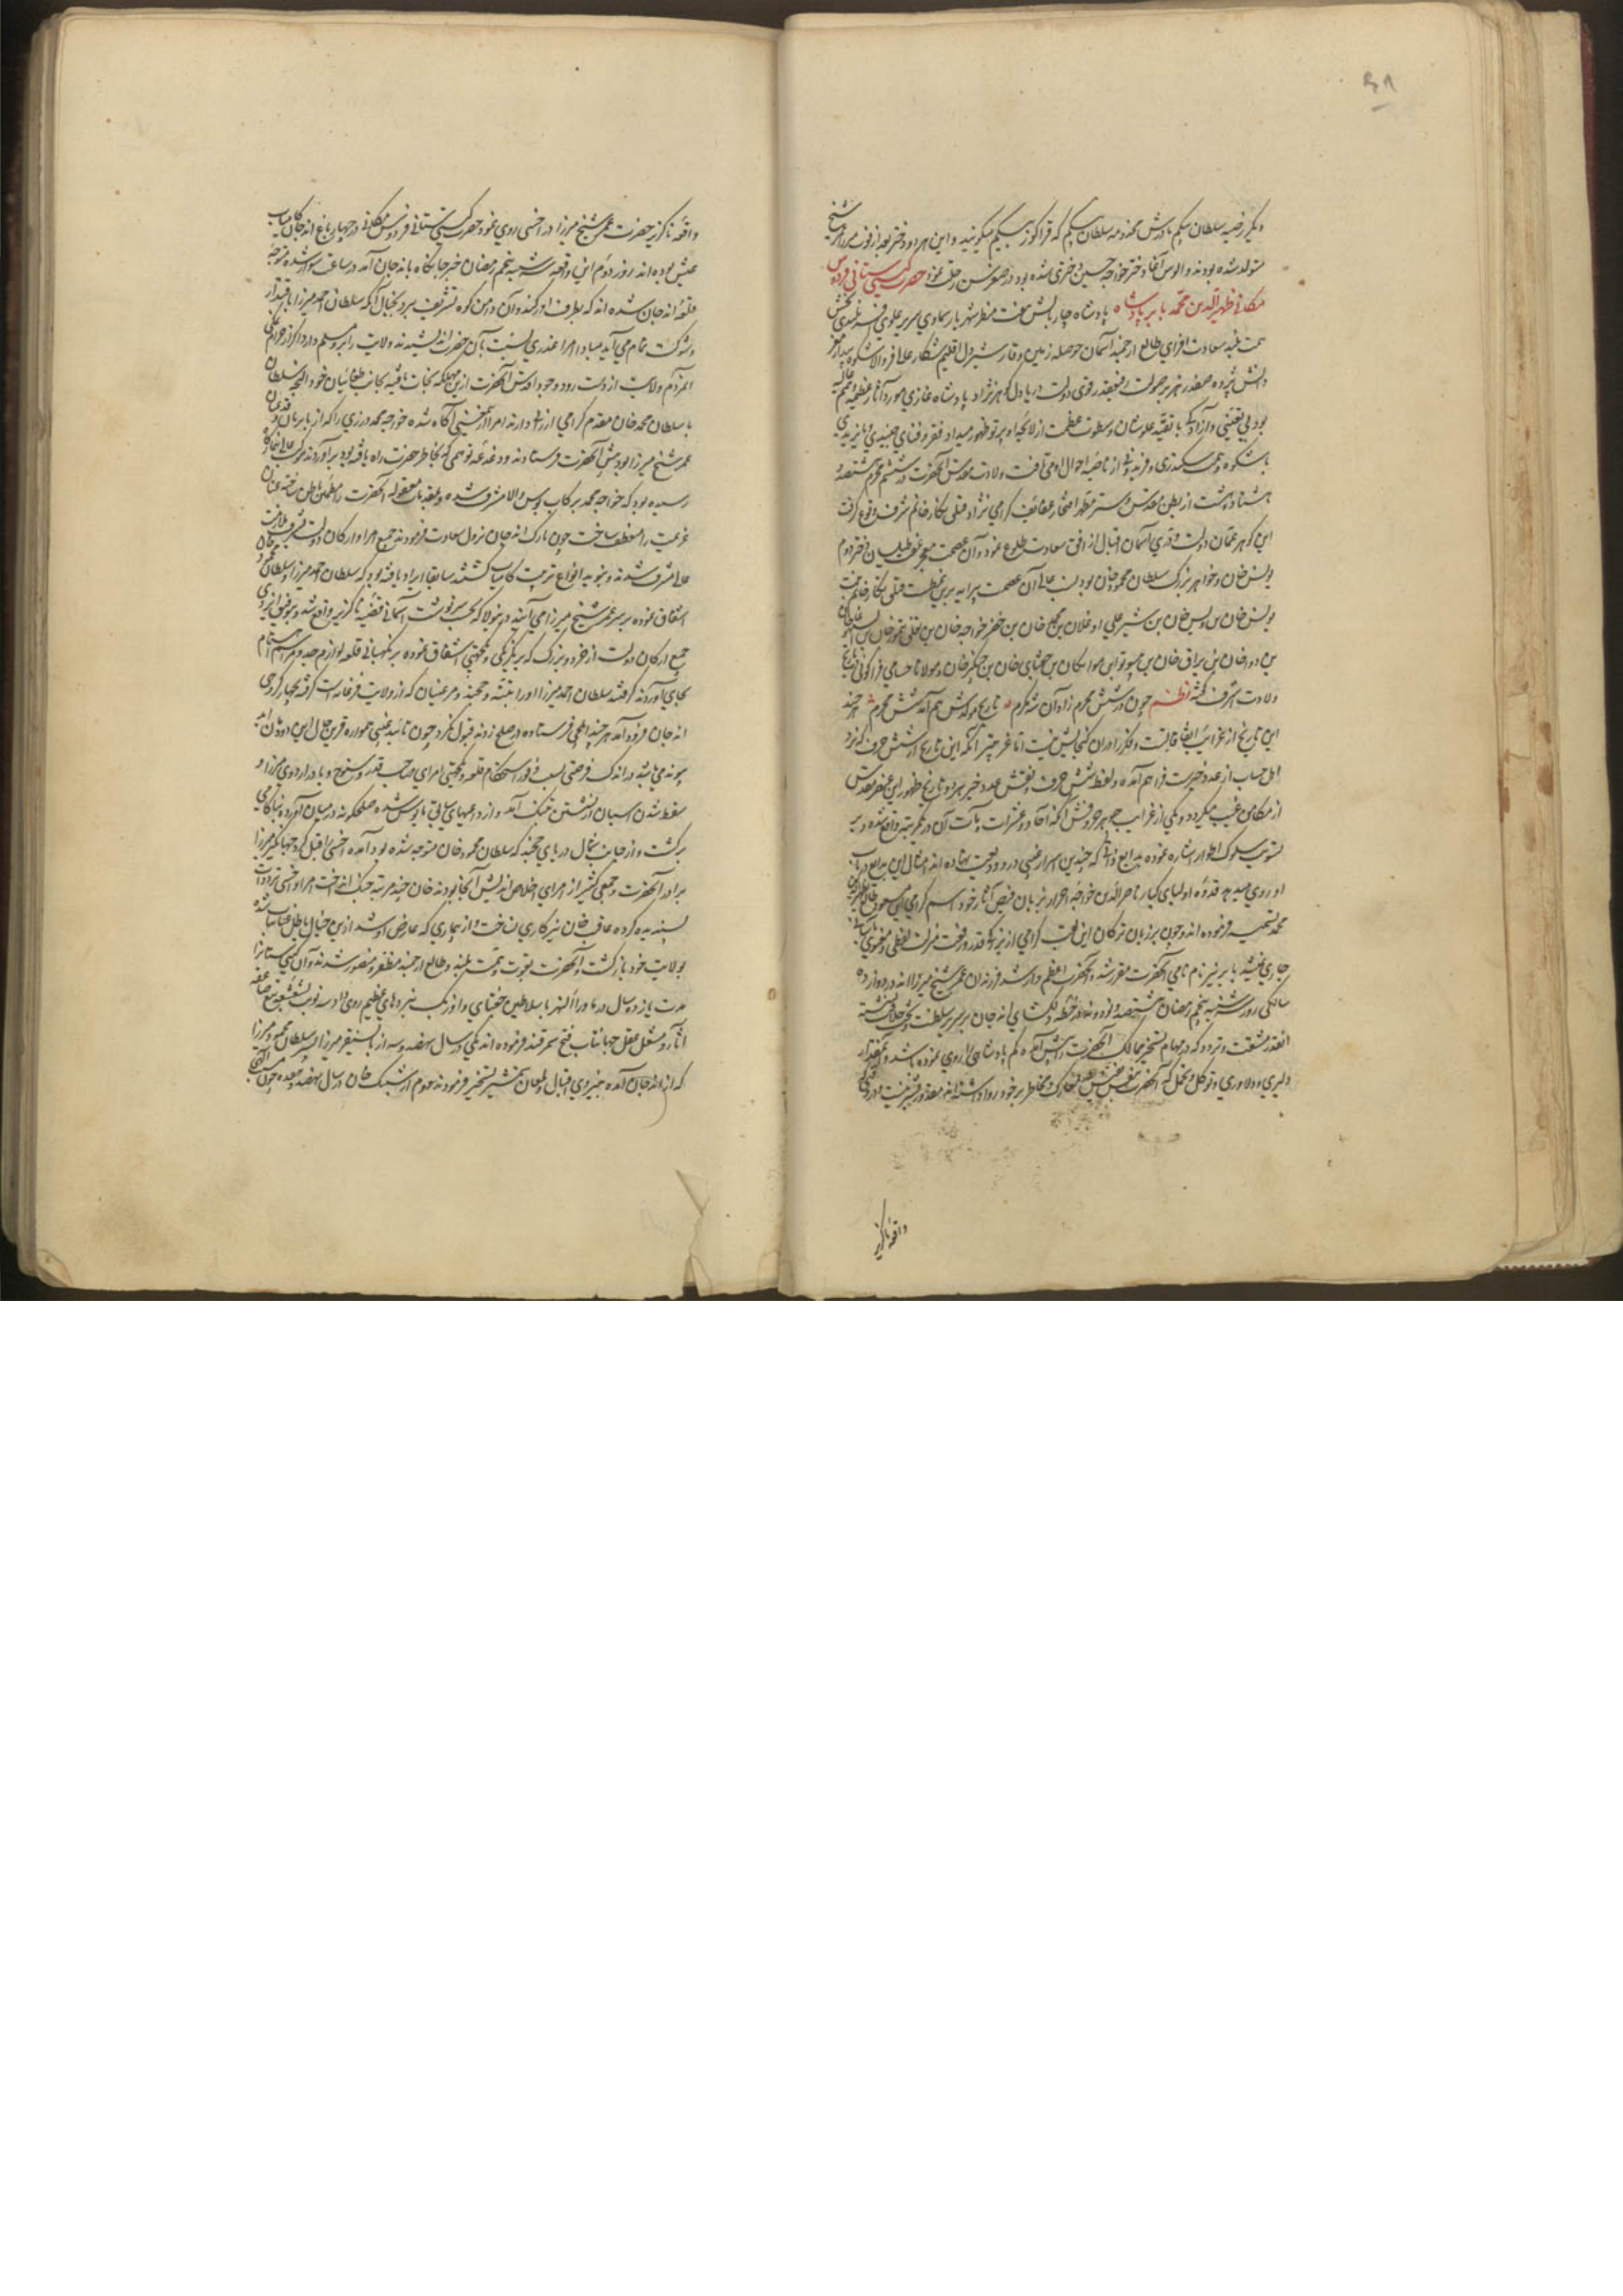 ۶۸
دیگر رضیه سلطان بیگم مادرش مخدومه سلطان بیگم که قراکوز بیگم میگویند و این هر دو دختر بعد از فوت میرزا عمر شیخ
متولد شده بودند و الوس آغا دختر خواجه حسین دختری شده بود در صغر سن رحلت نمود حضرت گیتی ستانی فردوس
مکانی ظهیر الدین محمد بابر پادشاه پادشاه چار بالش هفت منظر شهریار سماوی سریر علوی بلندی بخش
همت بلند سعادت افزای طالع ارجمند آسمان حوصله زمین وقار شیر دل اقلیم شکار عالی فر والا شکوه بیدار مغز
دانش پژوه صفدر هژبر صولت قوی دولت دریا دل گوهر نژاد پادشاه غازی مورد آثار عظیمه
بود بی تعینی و آزادگی با تقید علو شان و سطوت عظمت از لایحه او پرتو ظهور میداد فقر و فنای جنیدی و بایزیدی
با شکوه و همت سکندری و فریدونی از ناصیه احوال او می تافت ولادت مقدس آنحضرت در ششم محرم هشتصد و
هشتاد و هشت از بطن مقدس و ستر مطهر عفائف گرامی نژاد قتلق نگار خانم شرف وقوع گرفت
این گوهر عمان دولت و دری آسمان اقبال از افق سعادت طلوع نمود و آن عصمت دختر دوم
یونس خان و خواهر بزرگ سلطان محمود خان بود نسب عالی آن عصمت پیرایه برین نمط است قتلق نگار خانم بنت
یونس خان بن ویس خان بن شیر علی اوغلان بن محمد خان بن خضر خواجه خان بن تغلق تیمور خان بن
بن دوا خان بن براق خان بن بن مواتکان بن چغتای خان بن چنگیز خان و مولانا حسامی قراکولی تاریخ
ولادت اشرف گفته نظم چون در شش محرم زاد آن شه مکرم تاریخ مولدش هم آمد شش محرم هر چند
این تاریخ از غرایب اتفاقات است و فکر را در آن گنجایش نیست اما غریب تر آنکه این تاریخ از شش حرف که نزد
اهل حساب از عدد خیر است فراهم آمده و لفظ شش حرف و نقش عدد خیر هر دو تاریخ ظهور این عنصر تقدس
از مکامن غیب میگردد و یکی از غرایب آنکه آحاد و عشرات و مآت آن در یک مرتبه واقع شده و بر
تسویت سلوک اطوار اشاره نموده بدایع که چندین اسرار غیبی درو ودیعت نهاده اند امثال این بدایع درباب
او روی میدهد قدوه اولیای کبار ناصر الدین خواجه احرار بزبان فیض آثار خود اسم گرامی مسعود طالع را ظهیر الدین
محمد تسمیه فرموده اند و چون بر زبان ترکان این لقب گرامی از قدر و رفعت منزلت لفظی و معنوی بآسانی
جاری نمیشد بابر نیز نام نامی آنحضرت مقرر شد و آنحضرت اعظم و ارشد فرزندان عمر شیخ میرزا اند در دوازده
سالگی روز شنبه پنجم رمضان هشتصد و نود و نه در خطه دلکشای اندجان بر سریر سلطنت و تخت خلافت نشسته
آنقدر مشقت و تردد که در مهام تسخیر ممالک آنحضرت را پیش آمده کم پادشاهی را روی نموده باشد و آنمقدار
دلیری و دلاوری و توکل و تحمل که آنحضرت بنفس نفیس در معارک و مخاطر بر خود روا داشته اند مقدور بشر نیست و در وقتی که
واقعه ناگزیر
واقعه ناگزیر حضرت عمر شیخ میرزا در اخسی روی نمود حضرت گیتی ستانی فردوس مکانی در چهار باغ اندجان کامیاب
عیش بوده اند روز دوم این واقعه سه شنبه پنجم رمضان خبر جانکاه باندجان آمد در ساعت سوار شده متوجه
قلعه اندجان شده اند که بطرف اورکند و آن دامن کوه تشریف برد بخیال آنکه سلطان احمد میرزا باقتدار
و شوکت تمام می آید مبادا امرا غدری نسبت بآن حضرت اندیشیده ولایت را برو مسلم دارند اگر از حرام نمکی
این مردم ولایت از دست رود وجود اقدس آنحضرت ازین مهلکه نجات یافته بجانب طغائیان خود الچه سلطان
یا سلطان محمود خان مقدم گرامی ارزانی دارند امرا آگاه شده خواجه محمد درزی را که از بابریان و قدیمان
عمر شیخ میرزا بود پیش آنحضرت فرستادند و دغدغه توهمی که بخاطر حضرت راه یافته بود بر آوردند موکب عالی بنمازگاه
رسیده بود که خواجه محمد برکاب بوس والا مشرف شده و بمقدمات معقوله آنحضرت را مطمئن خاطر ساخته عنان
عزیمت را منعطف ساخت چون بارک اندجان نزول سعادت فرمودند جمیع امرا و ارکان دولت بشرف ملازمت
عالی مشرف شدند و بنوید انواع تربیت کامیاب گشتند سابقا ایراد یافته بود که سلطان احمد میرزا و سلطان محمود خان
اتفاق نموده بر سر عمر شیخ میرزا می آیند درینولا که بحسب سرنوشت آسمانی قضیه ناگزیر واقع شد و بتوفیق ایزدی
جمیع ارکان دولت از خرد و بزرگ که بر یکرنگی و یکجهتی اتفاق نموده بر نگهبانی قلعه لوازم جد و مراسم اهتمام
بجای آوردند گرفتند سلطان احمد میرزا اوراتیپه و خجند و مرغینان که از ولایت فرغانه است گرفته بچهار کروهی
اندجان فرود آمد هر چند ایلچی فرستاده در صلح زدند قبول نکرد چون تائید غیبی همواره قرین حال این دودمان ابد
پیوند می باشد در اندک فرصتی بسبب وفور استحکام قلعه و یکجهتی امرای صاحب قدر و سنوح وبا در اردوی میرزا و
سقط شدن اسپان از نشستن تنگ آمد و از داعیهای سابق مایوس شده صلحگونه در میان آورده بناکامی
برگشت و از جانب شمال دریای خجند که سلطان محمود خان متوجه شده بود آمده اخسی را قبل کرد جهانگیر میرزا
برادر آنحضرت و جمعی کثیر از امرای اخلاص اندیش آنجا بودند خان چند مرتبه جنگ انداخت امرا و اخسی ترددات
پسندیده کرده عاقبت خان نیز کاری نساخت و از بیماری که عارض او شد ازین خیال باطل عنان تاب شده
بولایت خود بازگشت و آنحضرت بقوت همت بلند و طالع ارجمند مظفر و منصور شدند و آن گیتی ستان را
مدت یازده سال در ماوراء النهر با سلاطین چغتای و اوزبک نبردهای عظیم روی داد سه نوبت بشعشعه تیغ صاعقه
آثار و مشعل عقل جهانتاب فتح سمرقند فرموده اند یکی در سال نهصد و سه از بایسنقر میرزا پسر سلطان محمود میرزا
که از اندجان آمده بنیروی اقبال و لمعان شمشیر تسخیر فرمودند دوم از شیبک خان در سال نهصد و شش